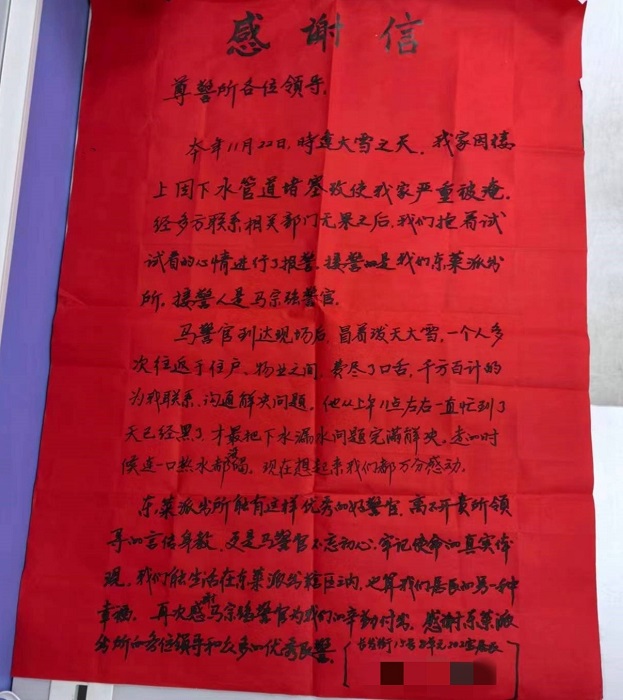 感谢信
尊警所各位领导,
本年11月22日,时逢大雪之天,我家因楼
上因下水管道堵塞致使我家严重被淹.
经多方联系相关部门无果之后,我们抱着试
试看的心情进行了报警.接警的是我们东莱派出
所,接警人是马宗强警官.
马警官到达现场后,冒着泼天大雪,一个人多
次往返于住户、物业之间,费尽了口舌,千方百计的
为我联系、沟通解决问题,他从上午11点左右一直忙到了
天已经黑了,才最把下水漏水问题完满解决,走的时
候连一口热水都没喝,现在想起来我们都万分感动.
东莱派出所能有这样优秀的好警官,离不开贵所领
导的言传身教,更是马警官不忘初心,牢记使命的真实体
现,我们能生活在东莱派出辖区之内,也算我们居民的另一种
幸福,再次感谢马宗强警官为我们的辛勤付出,感谢东莱派
出所的各位领导和众多的优秀民警.
15号3单元202室居民